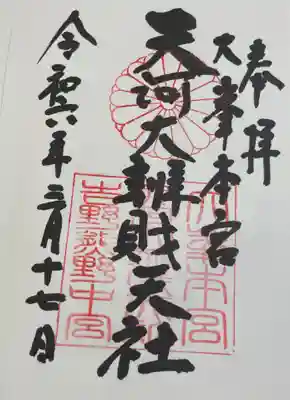 奉拝
大峯本宮
天河大辨財天社
令和六年三月十七日
吉野熊野中宮